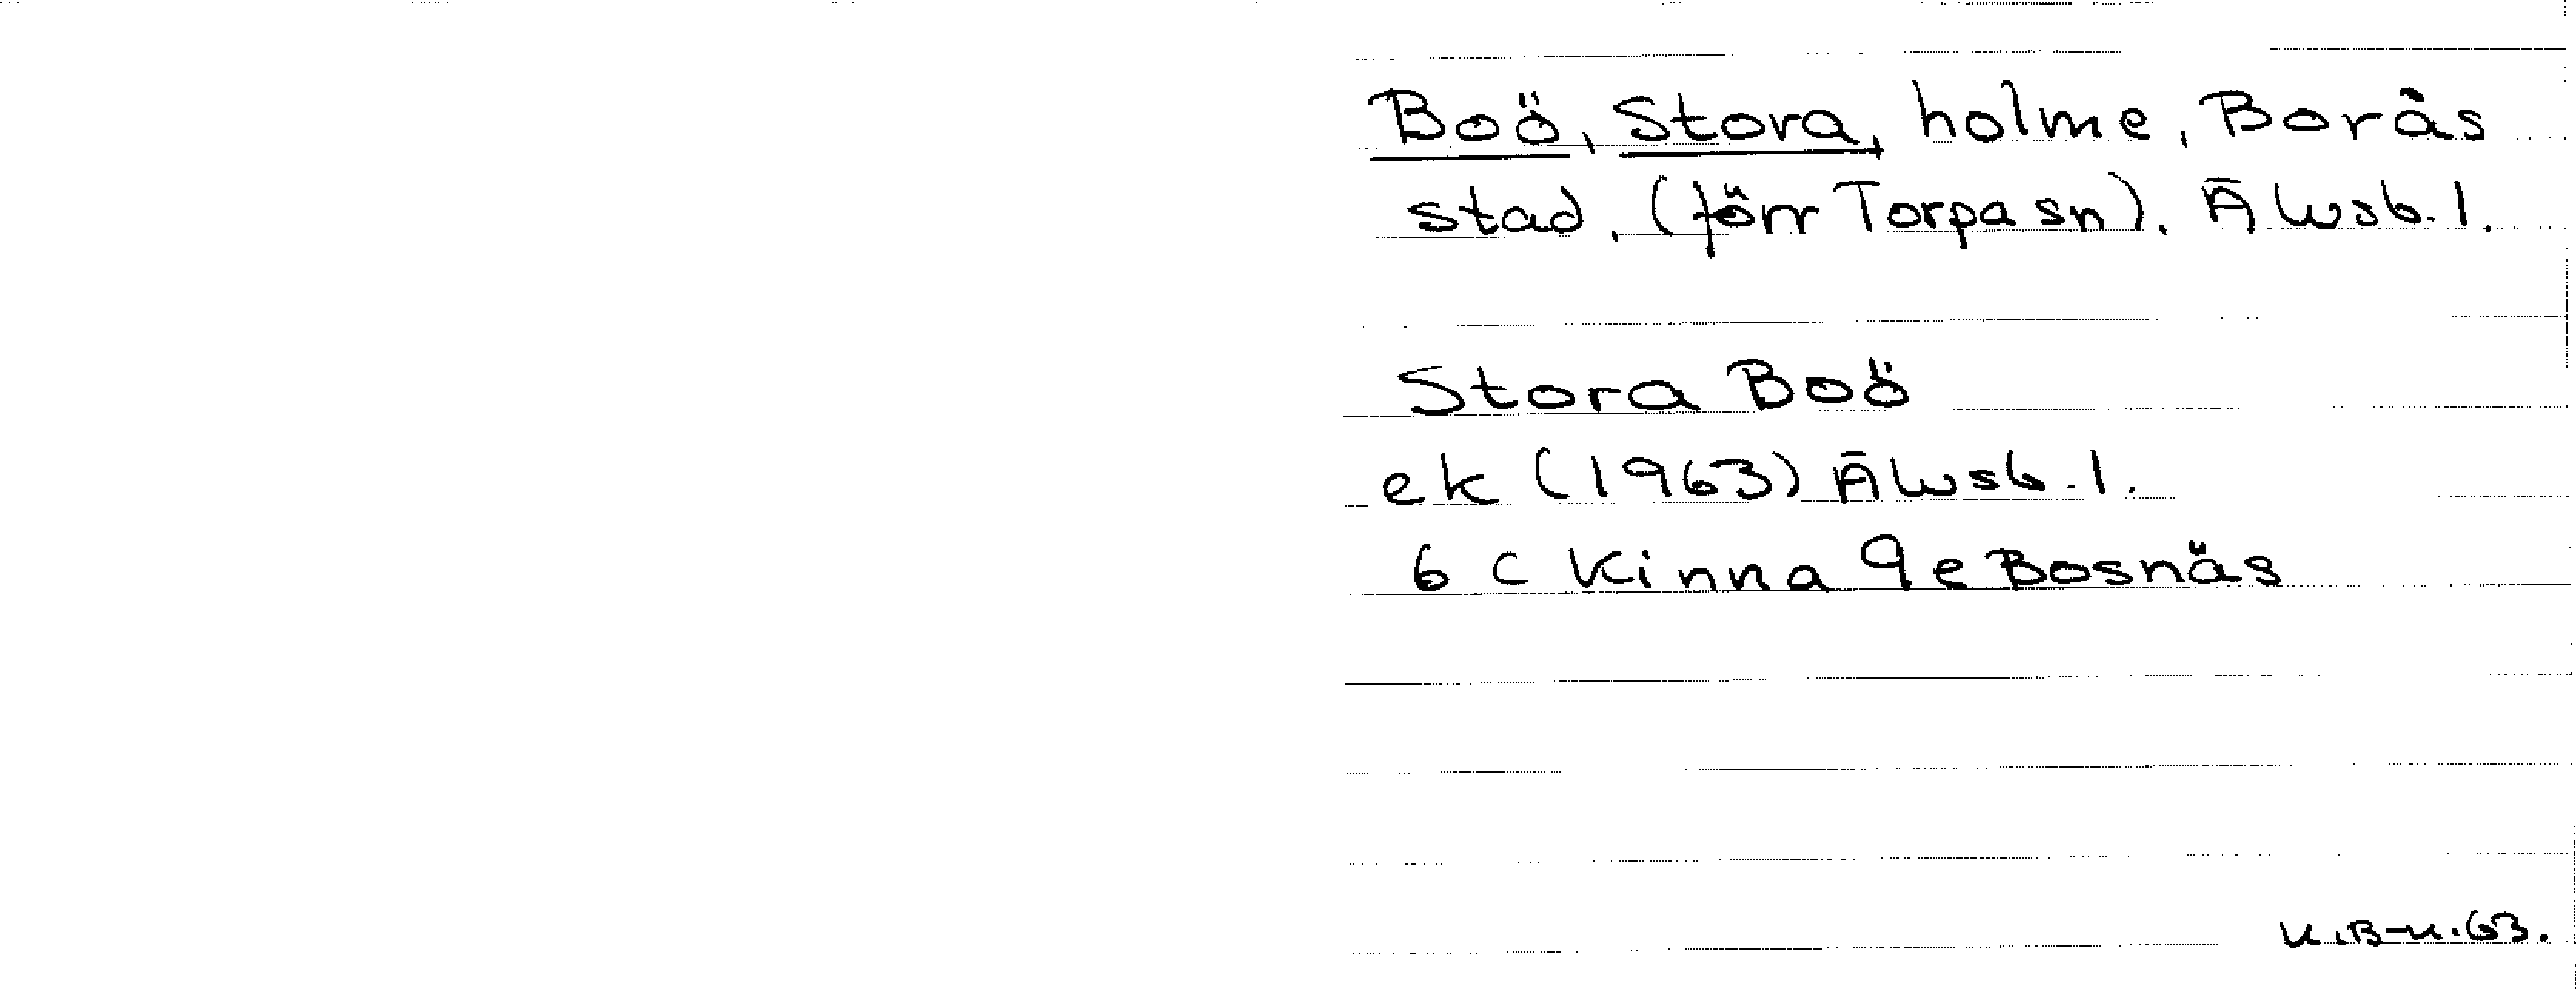 Boö, Stora, holme, Borås
stad, (förr Torpa sn). Älvsb. l.
Stora Boö
ek (1963) Älvsb. l.
6 C Kinna 9e Bosnäs
K.B-n.63.